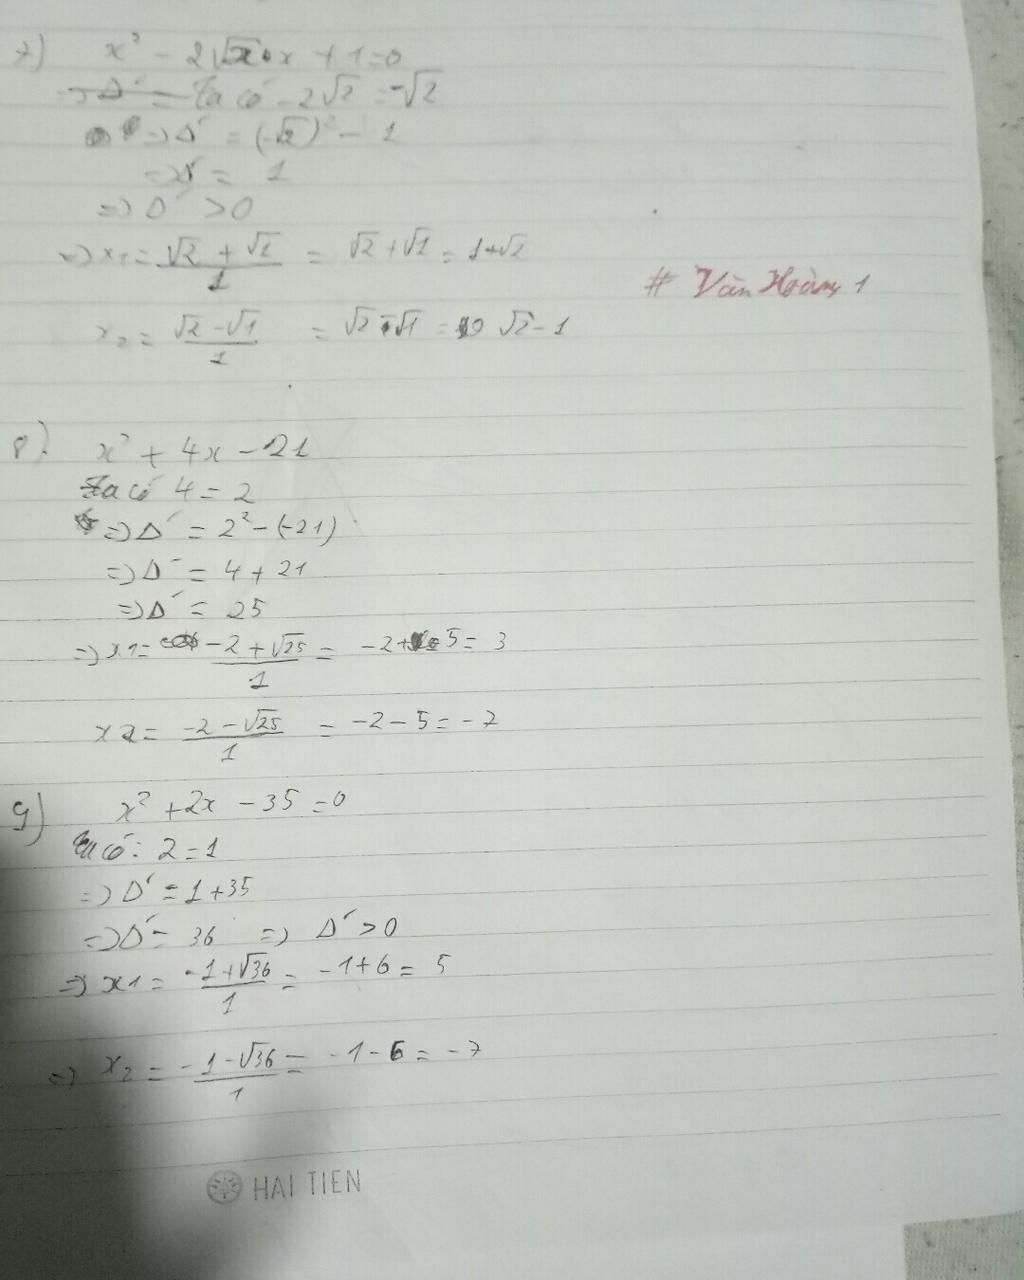 7) x² - 2√2·x + 1 = 0
=> Δ' = Ta có -2√2 = -√2
=> Δ' = (-√2)² - 1
=> Δ' = 1
=> Δ' > 0
=> x1 = (√2 + √1)/1 = √2 + √1 = 1+√2
# Văn Hoàng 1
x2 = (√2 - √1)/1 = √2 - √1 = √2 - 1
8) x² + 4x - 21
Ta có 4 = 2
=> Δ' = 2² - (-21)
=> Δ' = 4 + 21
=> Δ' = 25
=> x1 = (-2 + √25)/1 = -2 + 5 = 3
x2 = (-2 - √25)/1 = -2 - 5 = -7
9) x² + 2x - 35 = 0
Ta có: 2 = 1
=> Δ' = 1 + 35
=> Δ' = 36 => Δ' > 0
=> x1 = (-1 + √36)/1 = -1 + 6 = 5
=> x2 = (-1 - √36)/1 = -1 - 6 = -7
HAI TIEN